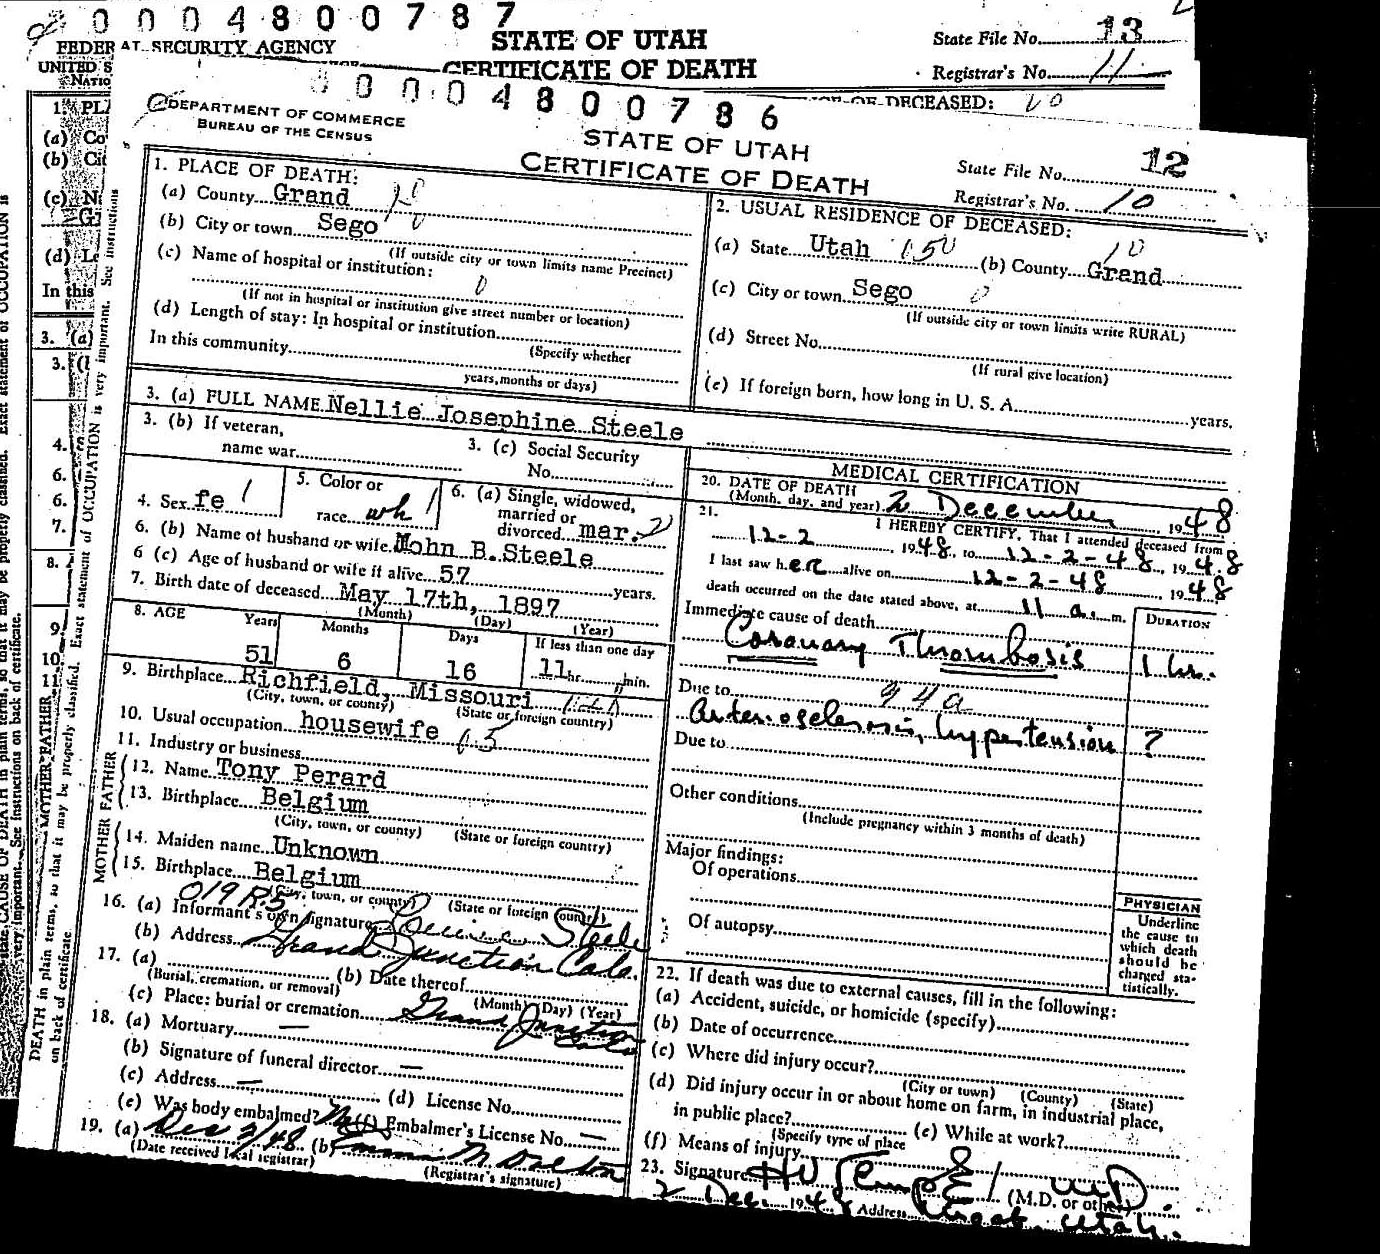 0 0 0 4 8 0 0 7 8 7
FEDERAL SECURITY AGENCY
STATE OF UTAH
CERTIFICATE OF DEATH
State File No. 13
Registrar's No. 11
UNITED S
NATIO
OF DECEASED: 10
0 0 0 0 4 8 0 0 7 8 6
DEPARTMENT OF COMMERCE
BUREAU OF THE CENSUS
STATE OF UTAH
CERTIFICATE OF DEATH
State File No. 12
Registrar's No. 10
1. PLACE OF DEATH:
(a) County Grand
(b) City or town Sego
(If outside city or town limits name Precinct)
(c) Name of hospital or institution:
0
(If not in hospital or institution give street number or location)
(d) Length of stay: In hospital or institution
(Specify whether
In this community
years, months or days)
2. USUAL RESIDENCE OF DECEASED:
(a) State Utah 150 (b) County Grand 10
(c) City or town Sego 0
(If outside city or town limits write RURAL)
(d) Street No.
(If rural give location)
(e) If foreign born, how long in U. S. A. years.
3. (a) FULL NAME Nellie Josephine Steele
3. (b) If veteran,
name war
3. (c) Social Security
No.
4. Sex fe 1
5. Color or
race wh 1
6. (a) Single, widowed,
married or
divorced mar. 2
6. (b) Name of husband or wife John B. Steele
6 (c) Age of husband or wife if alive 57 years.
7. Birth date of deceased May 17th, 1897
(Month) (Day) (Year)
8. AGE Years Months Days If less than one day
51 6 16 11 hr. min.
9. Birthplace Richfield, Missouri
(City, town, or county) (State or foreign country)
10. Usual occupation housewife
11. Industry or business
FATHER
12. Name Tony Perard
13. Birthplace Belgium
(City, town, or county) (State or foreign country)
MOTHER
14. Maiden name Unknown
15. Birthplace Belgium
(City, town, or county) (State or foreign country)
019 R5
16. (a) Informant's own signature Steele
(b) Address Grand Junction Colo.
17. (a) (b) Date thereof
(Burial, cremation, or removal) (Month) (Day) (Year)
(c) Place: burial or cremation Grand Junction
Colo
18. (a) Mortuary —
(b) Signature of funeral director —
(c) Address — (d) License No.
(e) Was body embalmed? No (f) Embalmer's License No. —
19. (a) Dec 2/48 (b)
(Date received local registrar) (Registrar's signature)
MEDICAL CERTIFICATION
20. DATE OF DEATH
(Month, day, and year) 2 December 1948
21. I HEREBY CERTIFY, That I attended deceased from
12-2, 1948, to 12-2-48, 1948
I last saw her alive on 12-2-48 1948
death occurred on the date stated above, at 11 a. m.
Immediate cause of death DURATION
Coronary Thrombosis 1 hr.
Due to 94a
arteriosclerosis, hypertension ?
Due to
Other conditions
(Include pregnancy within 3 months of death)
Major findings:
Of operations
Of autopsy
PHYSICIAN
Underline
the cause to
which death
should be
charged sta-
tistically.
22. If death was due to external causes, fill in the following:
(a) Accident, suicide, or homicide (specify)
(b) Date of occurrence
(c) Where did injury occur?
(City or town) (County) (State)
(d) Did injury occur in or about home on farm, in industrial place,
in public place? (e) While at work?
(Specify type of place
(f) Means of injury
23. Signature M.D.
(M.D. or other)
2 Dec. 1948 Address Utah.